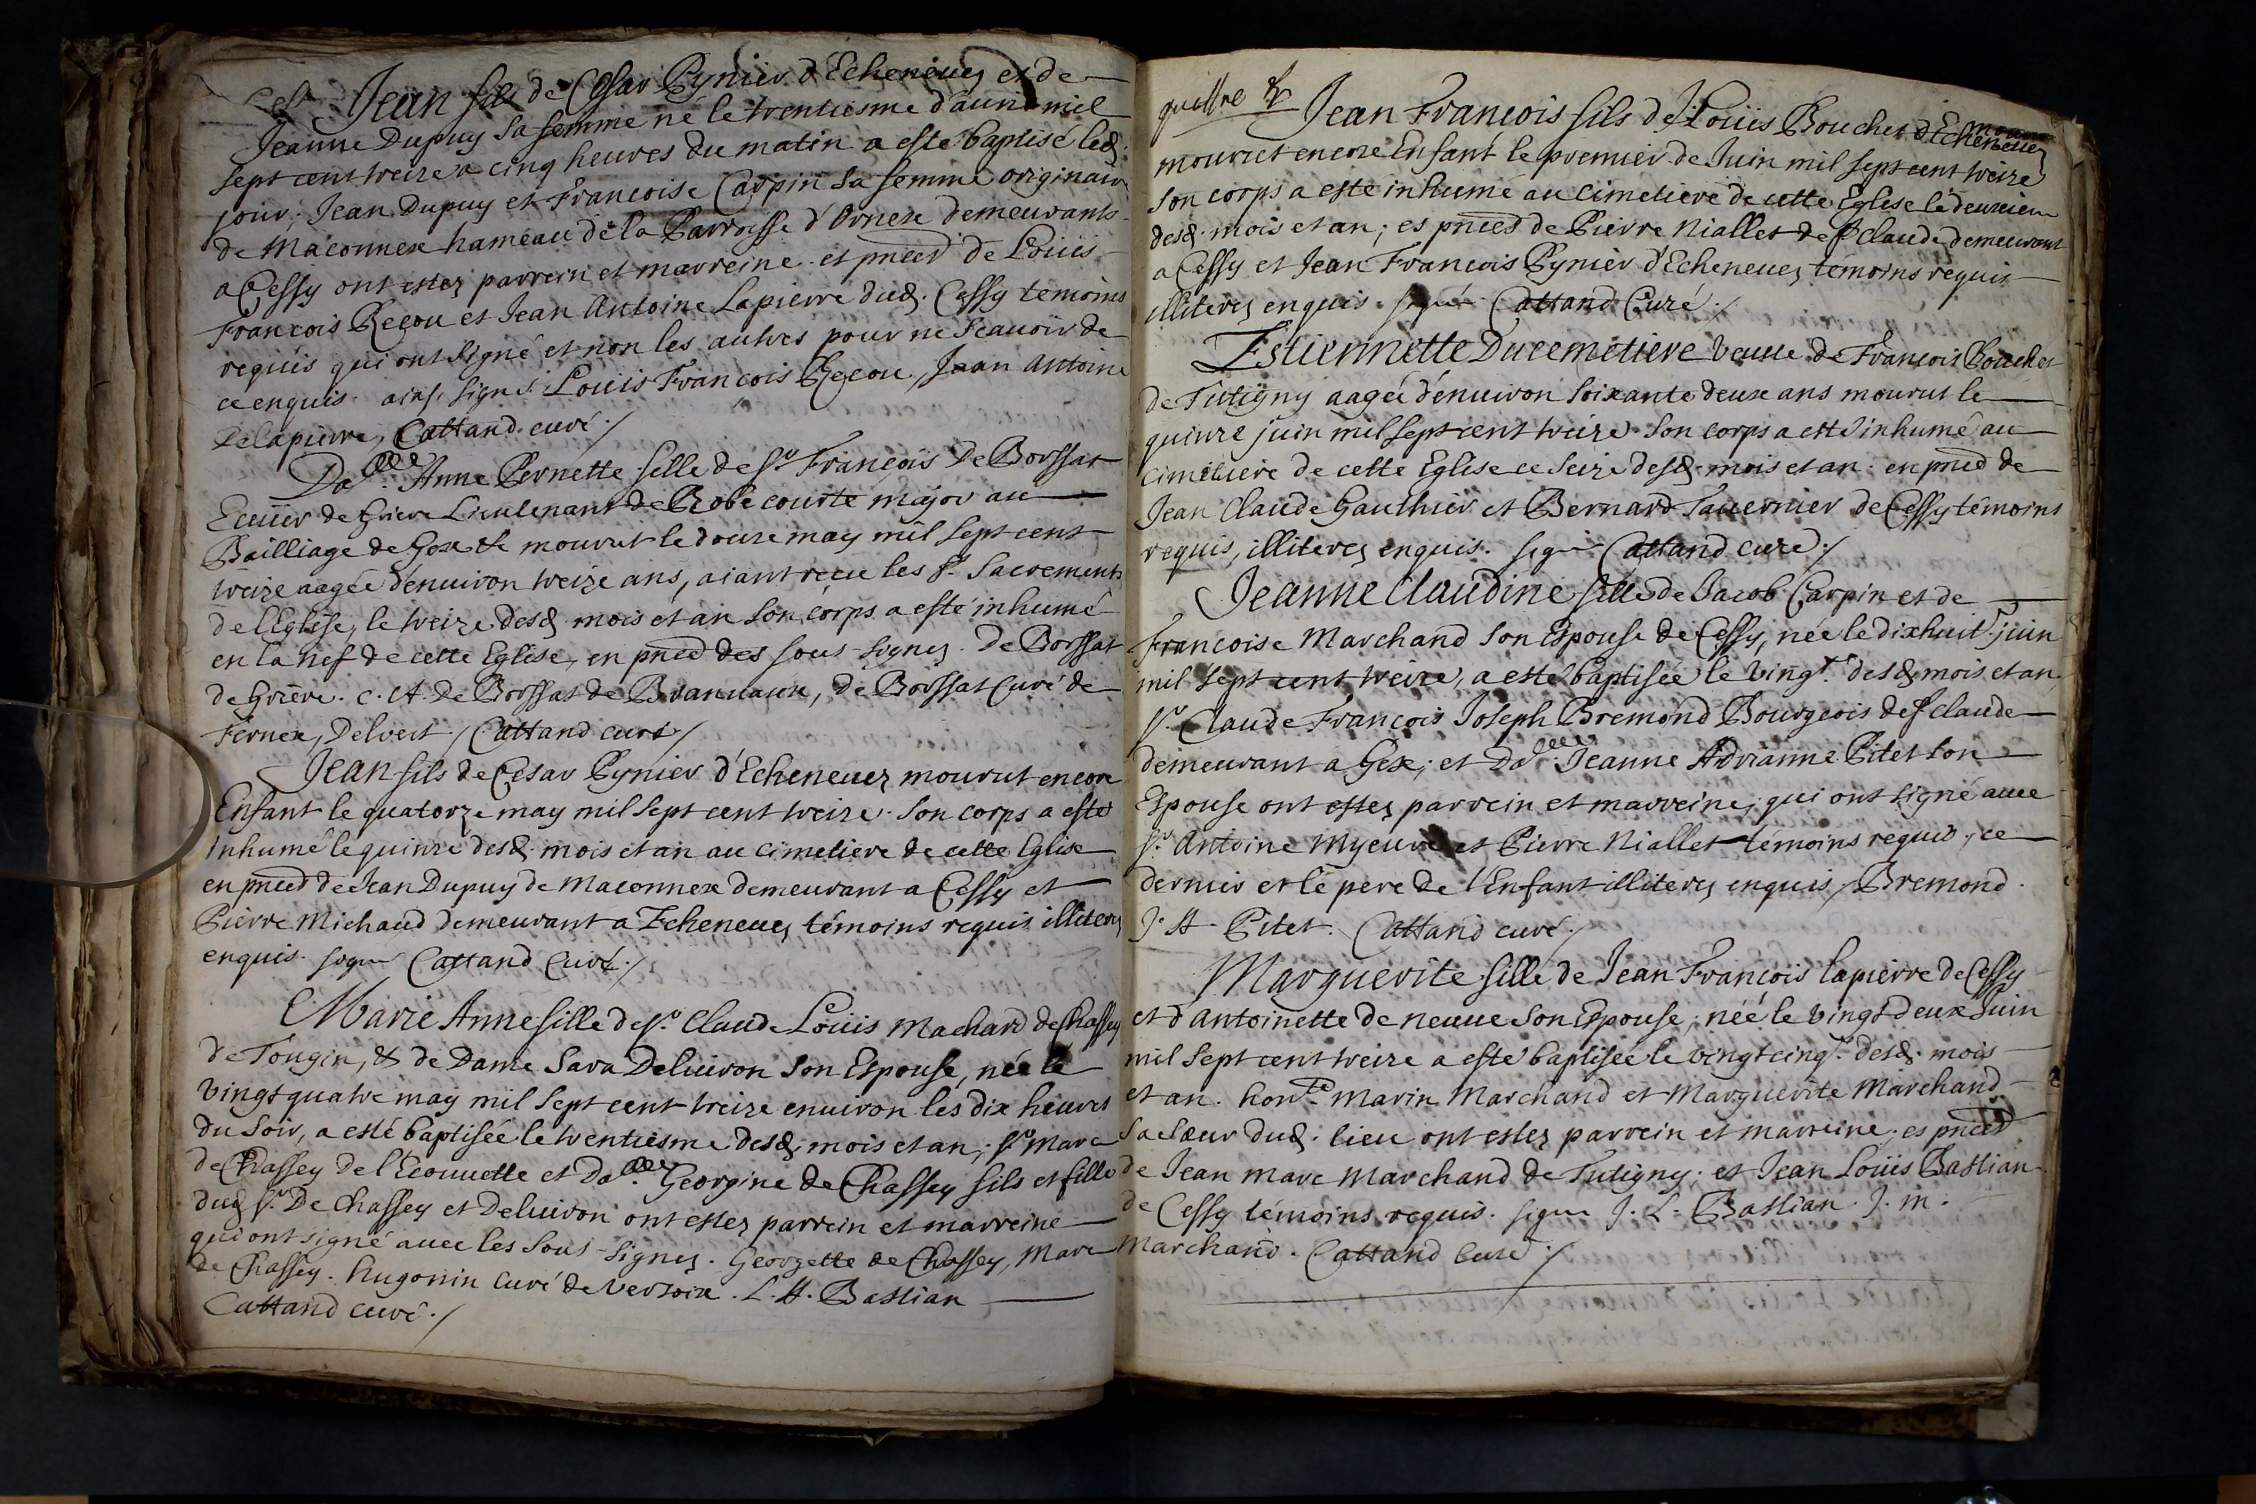 Jean fils de Cesar Pynier d'Echeneuez et de
Jeanne Dupuy sa femme né le trentiesme d'auril miel
sept cent treize a cinq heures du matin a esté baptisé led.
jour; Jean Dupuy et Francoise Carpin sa femme originaire
de Maconnex hameau de la Parroisse d'Ornex demeurants
a Cessy ont estez parrein et marreine et pnces de Loüis
François Reçou et Jean Antoine Lapierre dud. Cessy temoins
requis qui ont signé et non les autres pour ne scauoir de
ce enquis. ainsi signé. Louis François Reçou, Jean Antoine
Delapierre, Cattand curé./
Da.lle Anne Pernette fille de sr. François De Borssat
Ecuïer de Griere Lieutenant de Robe courte major au
Bailliage de Gex &c mourut le douze may mil sept cent
treize aagée d'enuiron treize ans, aiant recue les st. Sacrements
de l'Eglise, le treize desd. mois et an son corps a esté inhumé
en la nef de cette Eglise, en pnce des sous-signez. De Borssat
de Griere. C. A. De Borssat de Branuaux, De Borssat Curé de
Fernex, Delvert / Cattand curé /
Jean fils de Cesar Pynier d'Echeneuez mourut encore
Enfant le quatorze may mil sept cent treize. Son corps a esté
inhumé le quinze desd. mois et an au cimetiere de cette Eglise
en pnces de Jean Dupuy de Maconnex demeurant a Cessy et
Pierre Michaud demeurant a Echeneuez témoins requis illiterez
enquis. signé Cattand Curé./
Marie Anne fille de sr. Claude Loüis Machard de Chassey
de Tougin, & de Dame Sara Deluiron son Espouse, née le
vingt quatre may mil sept cent treize enuiron les dix heures
du soir, a esté baptisée le trentiesme desd. mois et an; sr. Marc
de Chassey de l'Ecouuette et Da.lle Georgine de Chassey fils et fille
dud sr. De Chassey et Deluiron ont estez parrein et marreine
qui ont signé auec les sous-signez. Georgette de Chassey, Marc
de Chassey. Hugonin Curé de Versoix. L. A. Bastian
Cattand curé./
Jean Francois fils de Loüis Bouchet d'Echeneuez
mourut encore Enfant le premier de Juin mil sept cent treize
son corps a esté inhumé au cimetiere de cette Eglise le deuxiem
desd. mois et an; es pnces de Pierre Niallet de st Claude demeurant
a Cessy et Jean Francois Pynier d'Echeneuez témoins requis
illiterez enquis. signé. Cattand Curé./
Estiennette Ducemetiere veuue de François Bouchet
de Tutigny aagée d'enuiron soixante deux ans mourut le
quinze juin mil sept cent treize. Son corps a esté inhumé au
cimetiere de cette Eglise ce seize desd. mois et an. en pnce de
Jean Claude Gauthier et Bernard Tauernier de Cessy témoins
requis, illiterez enquis. signé Cattand curé./
Jeanne Claudine fille de Jacob Carpin et de
Francoise Marchand son Espouse de Cessy, née le dix huit juin
mil sept cent treize, a esté baptisée le vingt. desd. mois et an,
sr. Claude François Joseph Bremond Bourgeois de st Claude
demeurant a Gex; et Da.lle Jeanne Adrianne Pitet son
Espouse ont estez parrein et marreine, qui ont signé auec
sr. Antoine Myeuvre et Pierre Niallet témoins requis, ce
dernier et le pere de l'Enfant illiterez enquis / Bremond.
J. A. Pitet. Cattand curé./
Marguerite fille de Jean François Lapierre de Cessy
et d'Antoinette de neuue son Espouse, née le vingt deux Juin
mil sept cent treize a esté baptisée le vingt cinq. desd. mois
et an. hon.te Marin Marchand et Marguerite Marchand
sa sœur dud. lieu ont estez parrein et marreine, es pnces
de Jean Marc Marchand de Tutigny; et Jean Loüis Bastian
de Cessy témoins requis. signé J. L. Bastian. J. M.
Marchand. Cattand Curé./